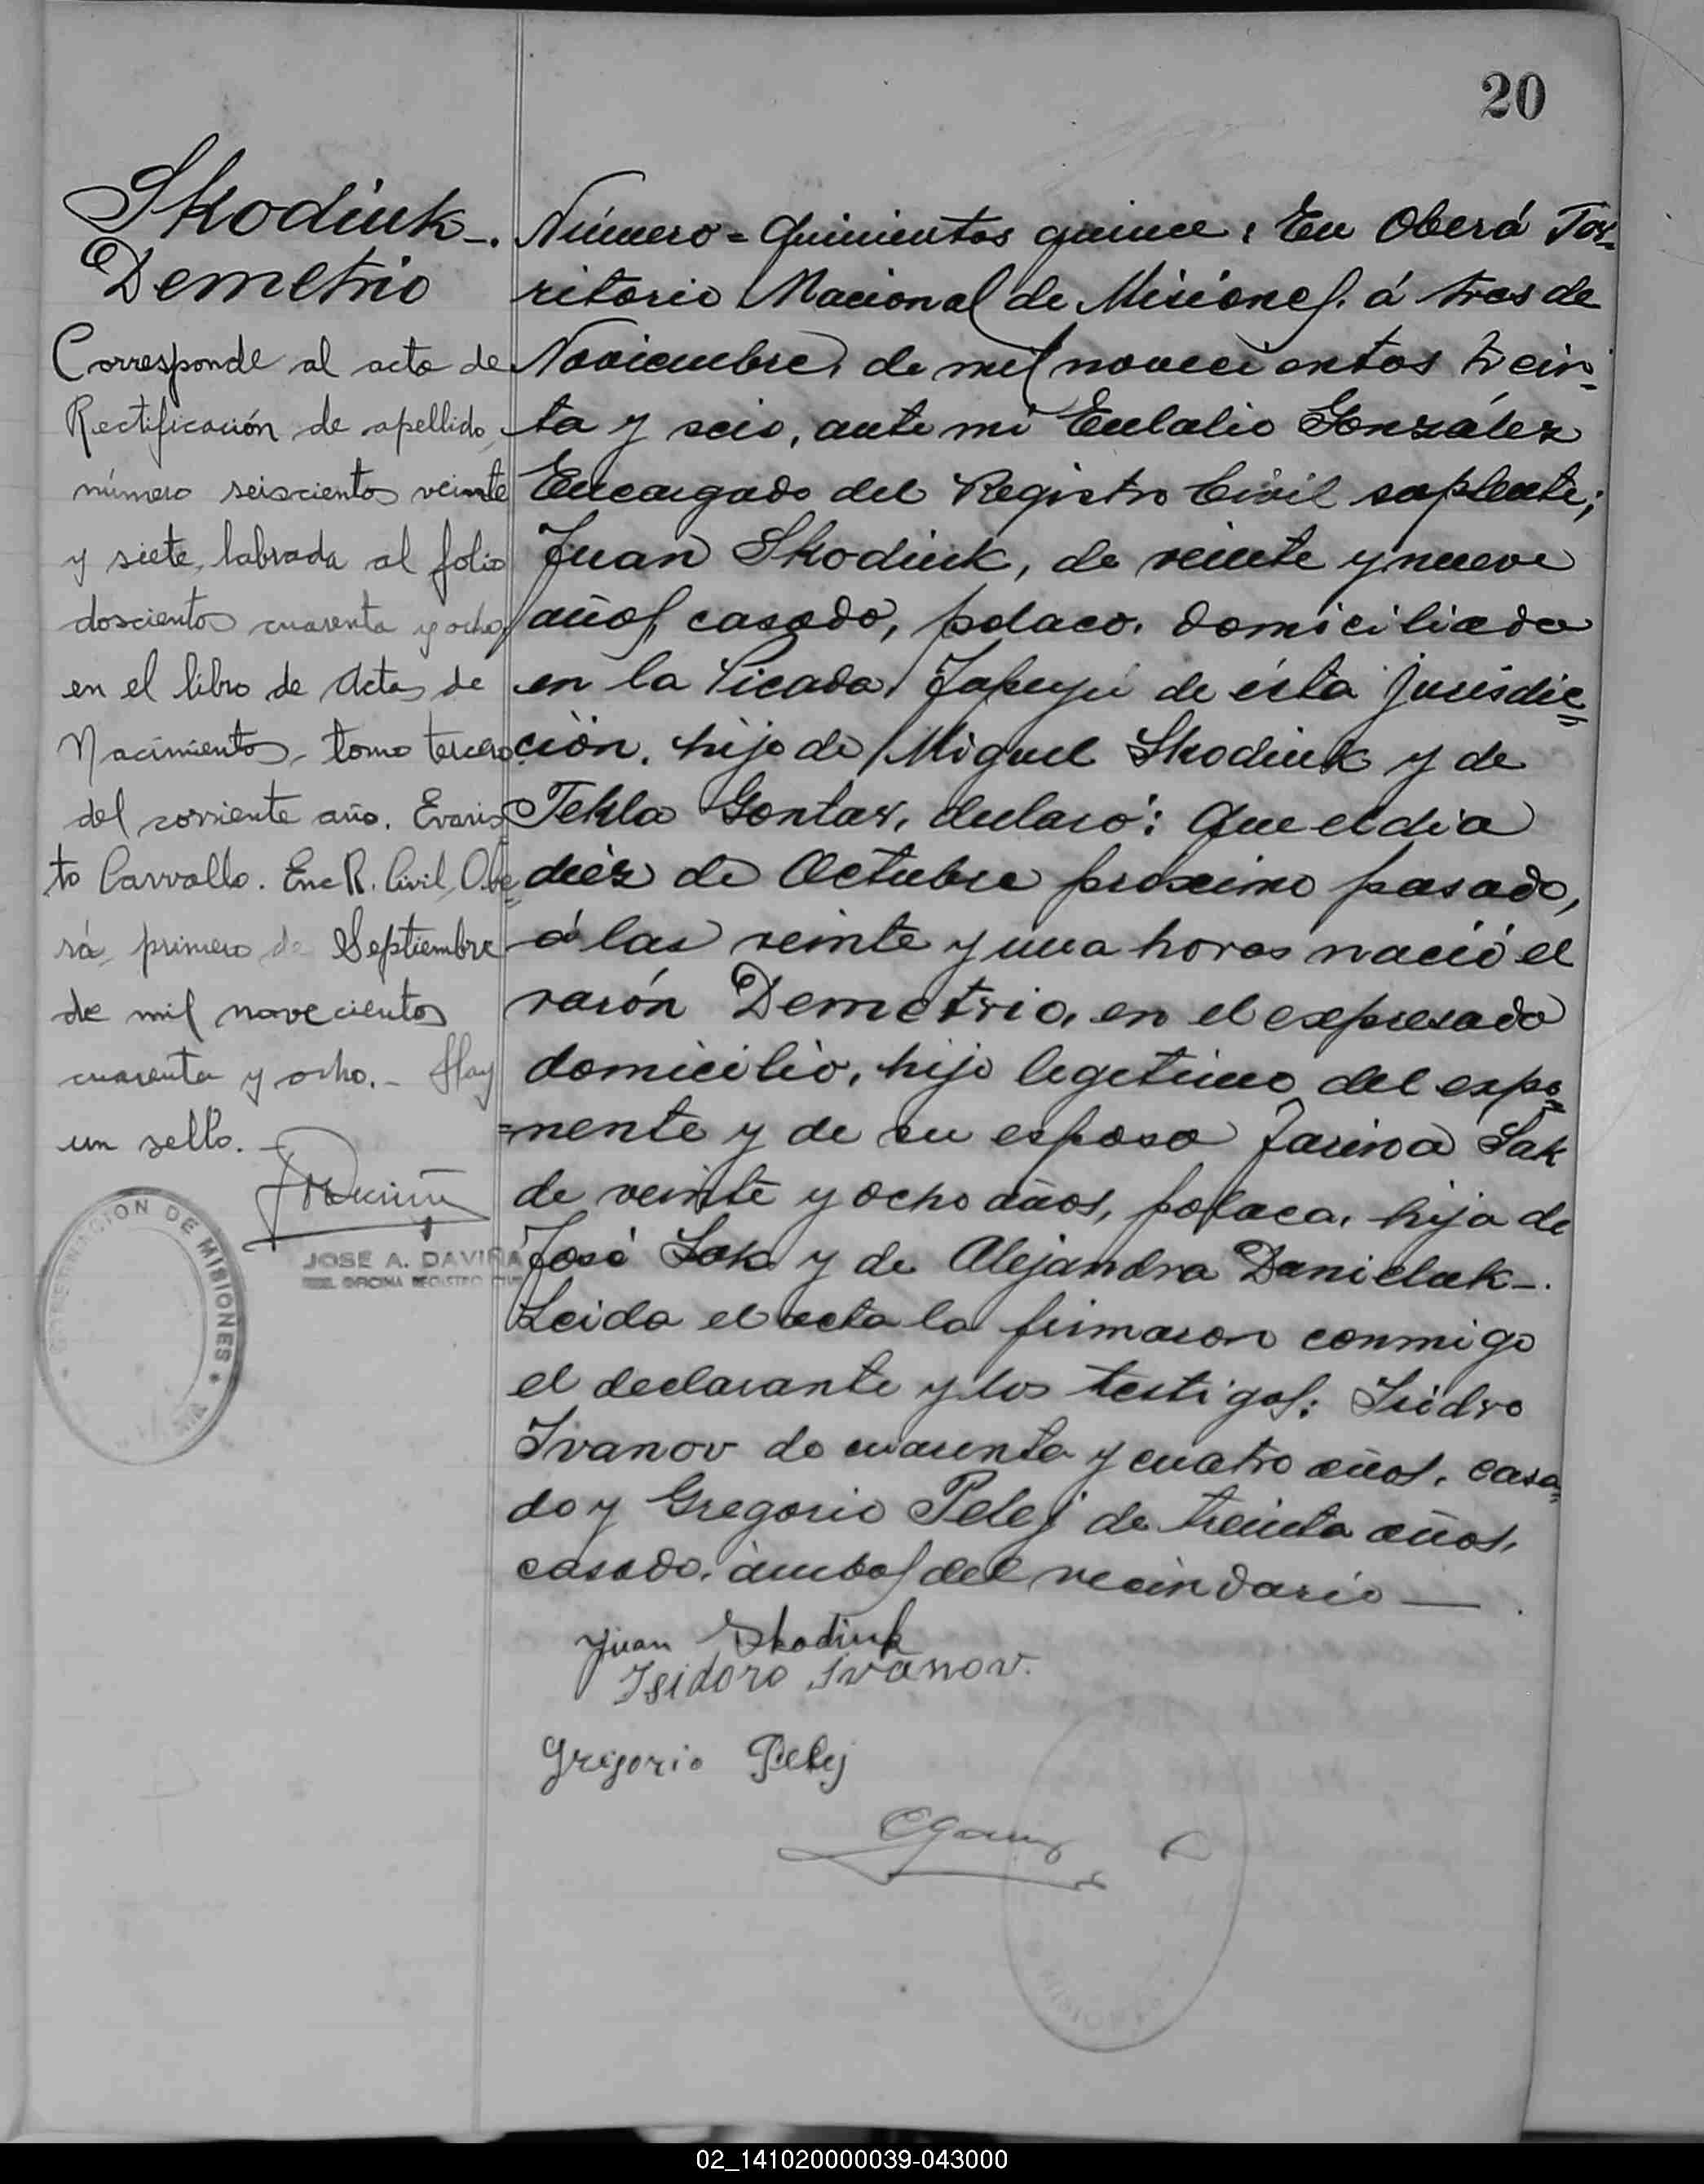 20
Skodiuk-.
Demetrio
Corresponde al acta de
Rectificación de apellido,
número seiscientos veinte
y siete, labrada al folio
doscientos cuarenta y ocho
en el libro de Actas de
Nacimientos, tomo tercero
del corriente año. Evaris
to Carvallo. Enc R. Civil, Obe=
rá, primero de Septiembre
de mil novecientos
cuarenta y ocho. - Hay
un sello. -
JOSE A. DAVIÑA
OFICINA REGISTRO CIVIL
GOBERNACION DE MISIONES
Número = Quinientos quince: En Oberá Ter=
ritorio Nacional de Misiones. á tres de
Noviembre, de mil novecientos trein=
ta y seis, ante mi Eulalio González
Encargado del Registro Civil suplente;
Juan Skodiuk, de veinte y nueve
años, casado, polaco. domiciliado
en la Picada Yapeyú de ésta jurisdic=
ción. hijo de Miguel Skodiuk y de
Tekla Gontar, declaró: Que el dia
diéz de Octubre proximo pasado,
á las veinte y una horas nació el
varón Demetrio, en el expresado
domicilio, hijo legitimo del expo=
=nente y de su esposa Jarina Sak
de veinte y ocho años, polaca, hija de
José Sak y de Alejandra Danieluk-.
Leida el acta la firmaron conmigo
el declarante y los testigos: Isidro
Ivanov de cuarenta y cuatro años, casa=
do y Gregorio Pelej de treinta años,
casado, ámbos del vecindario —
Juan Skodiuk
Isidoro Ivanov.
Gregorio Pelej
MISIONES
02_141020000039-043000